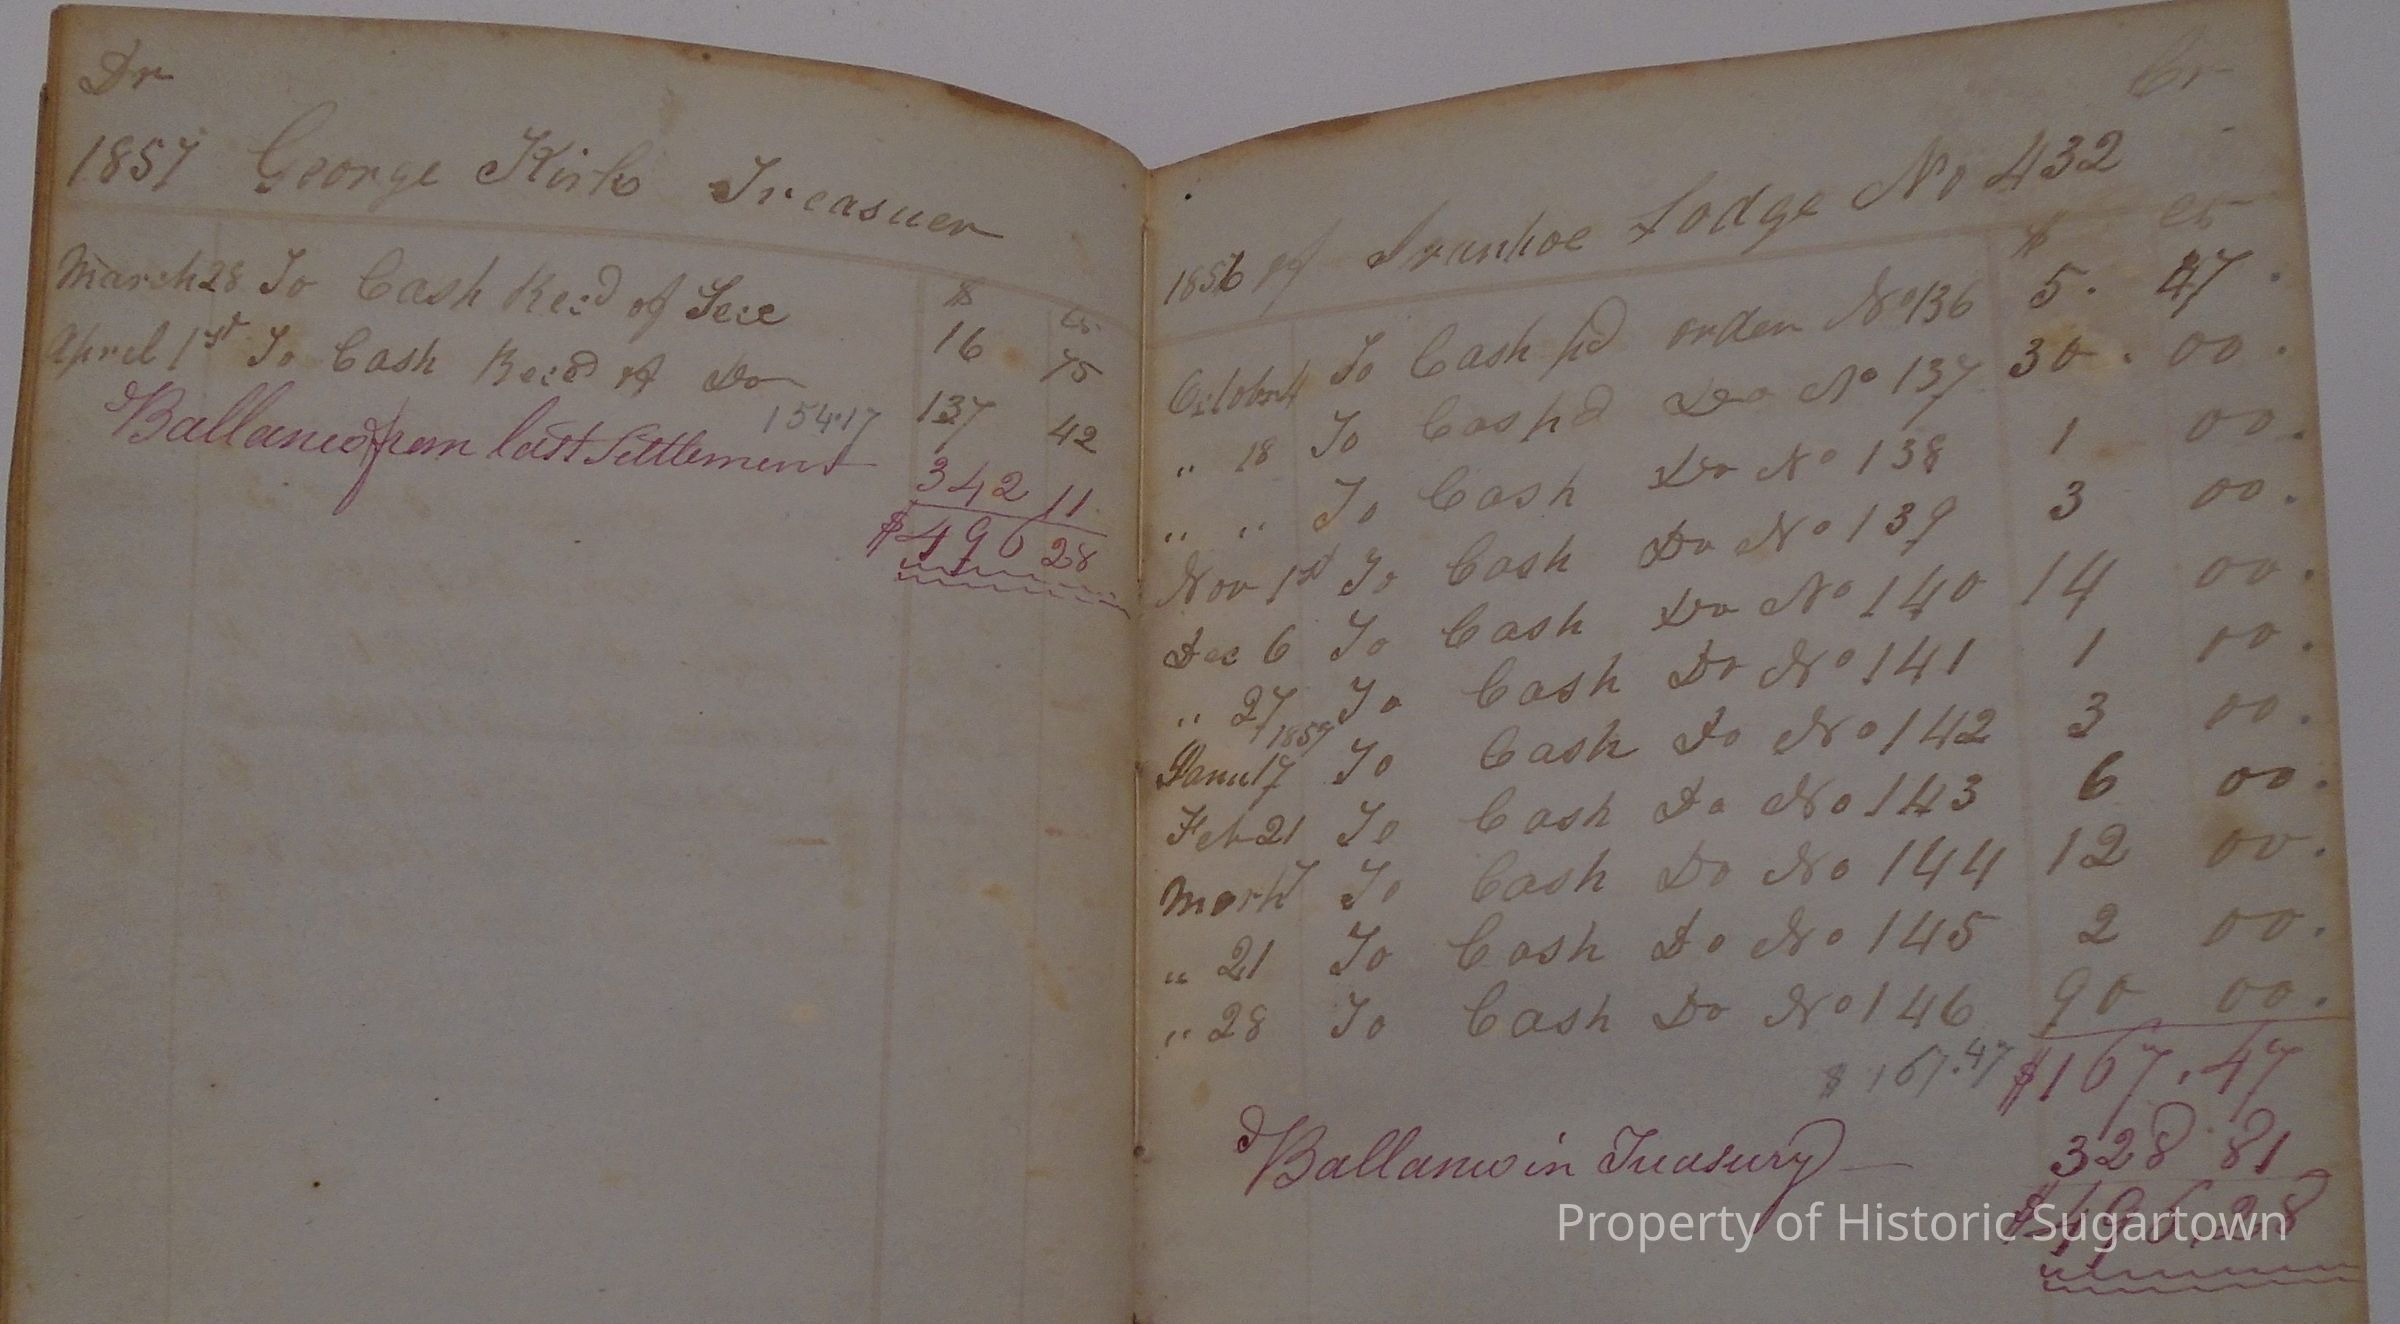 Dr
1857 George Kirk Treasuer
$ cts
March 28 To Cash Recd of Sece 16 75
April 1st To Cash Recd of Do 137 42
154.17
Ballance from last Settlement 342 11
$496 28
Cr
1856 of Ivanhoe Lodge No 432
$ cts
October 4 To Cash pd order No 136 5. 47.
" 18 To Cash pd Do No 137 30. 00.
" " To Cash Do No 138 1 00.
Nov 1st To Cash Do No 139 3 00.
Dec 6 To Cash Do No 140 14 00.
" 27 To Cash Do No 141 1 00.
1857
Janu 17 To Cash Do No 142 3 00.
Feb 21 To Cash Do No 143 6 00.
March 7 To Cash Do No 144 12 00.
" 21 To Cash Do No 145 2 00.
" 28 To Cash Do No 146 90 00.
$167.47 $167.47
Ballance in Treasury 328 81
$496.28
Property of Historic Sugartown